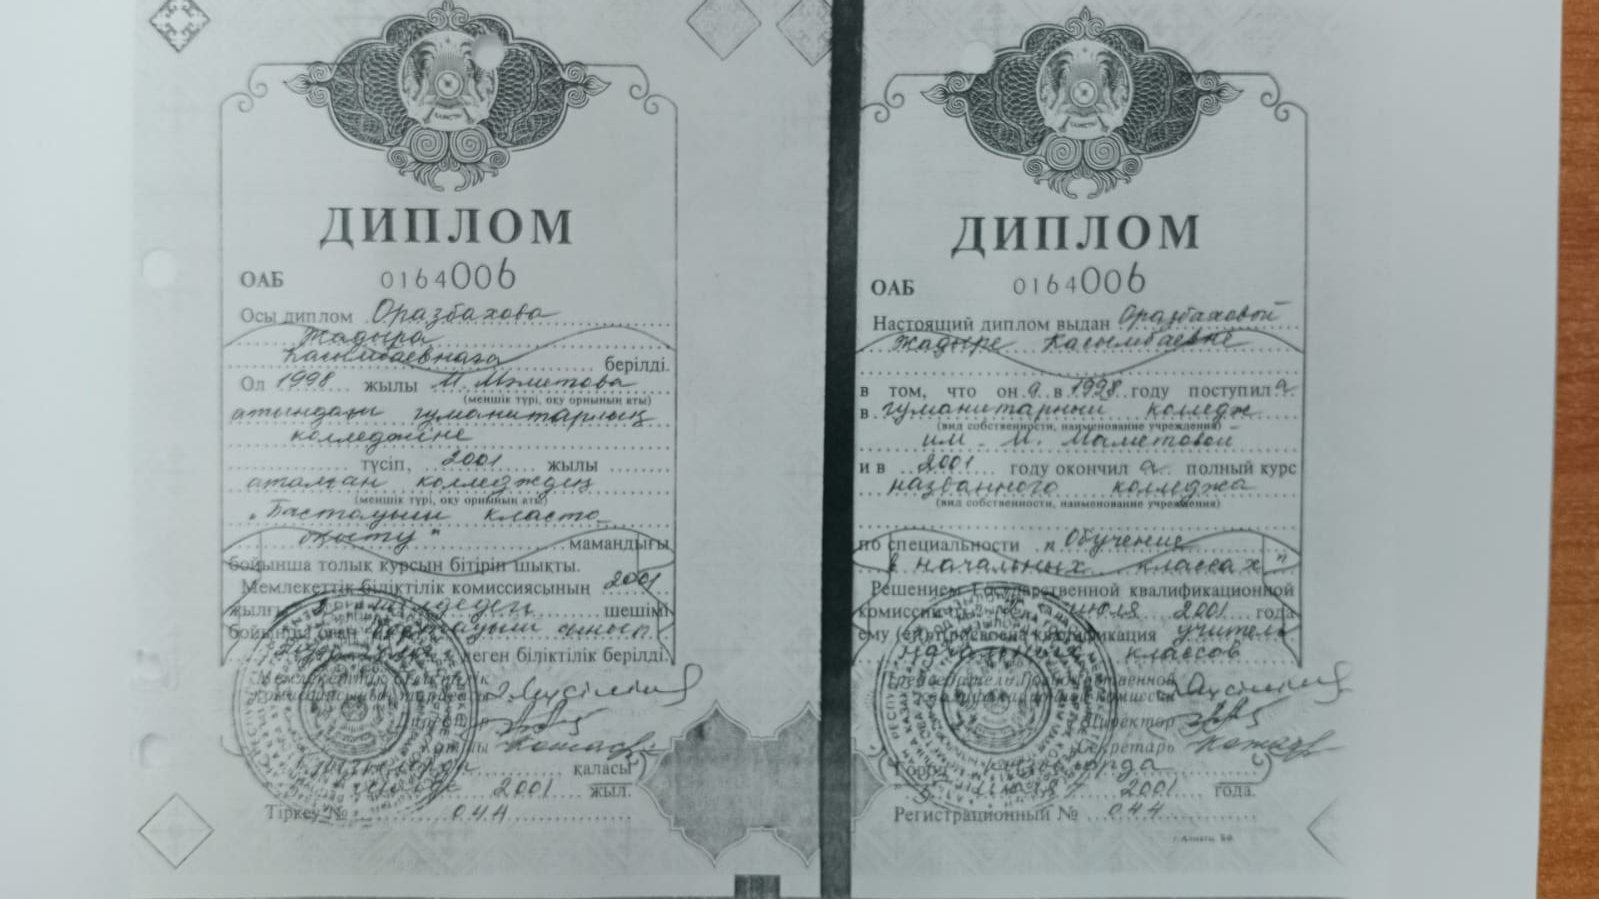 ДИПЛОМ
ОАБ 0164006
Осы диплом Оразбахова
Жадыра
Касымбаевнаға берілді.
Ол 1998 жылы М. Мәметова
(меншік түрі, оқу орнының аты)
атындағы гуманитарлық
колледжіне
түсіп, 2001 жылы
аталған колледждің
(меншік түрі, оқу орнының аты)
"Бастауыш класта
оқыту" мамандығы
бойынша толық курсын бітіріп шықты.
Мемлекеттік біліктілік комиссиясының 2001
жылғы шілдедегі шешімі
бойынша оған бастауыш сынып
деген біліктілік берілді.
Мемлекеттік біліктілік
комиссиясының төрағасы
Директор
Хатшы
қаласы
2001 жыл.
Тіркеу № 044
ДИПЛОМ
ОАБ 0164006
Настоящий диплом выдан Оразбаховой
Жадыре Касымбаевне
в том, что он а в 1998 году поступил а
в гуманитарный колледж
(вид собственности, наименование учреждения)
им. М. Маметовой
и в 2001 году окончил а полный курс
названного колледжа
(вид собственности, наименование учреждения)
по специальности "Обучение
в начальных классах"
Решением Государственной квалификационной
комиссии от июля 2001 года
ему (ей) присвоена квалификация учитель
начальных классов
Председатель Государственной
квалификационной комиссии
Директор
Секретарь
Город Кызылорда
5 июля 2001 года.
Регистрационный № 044
г.Алматы. БФ.